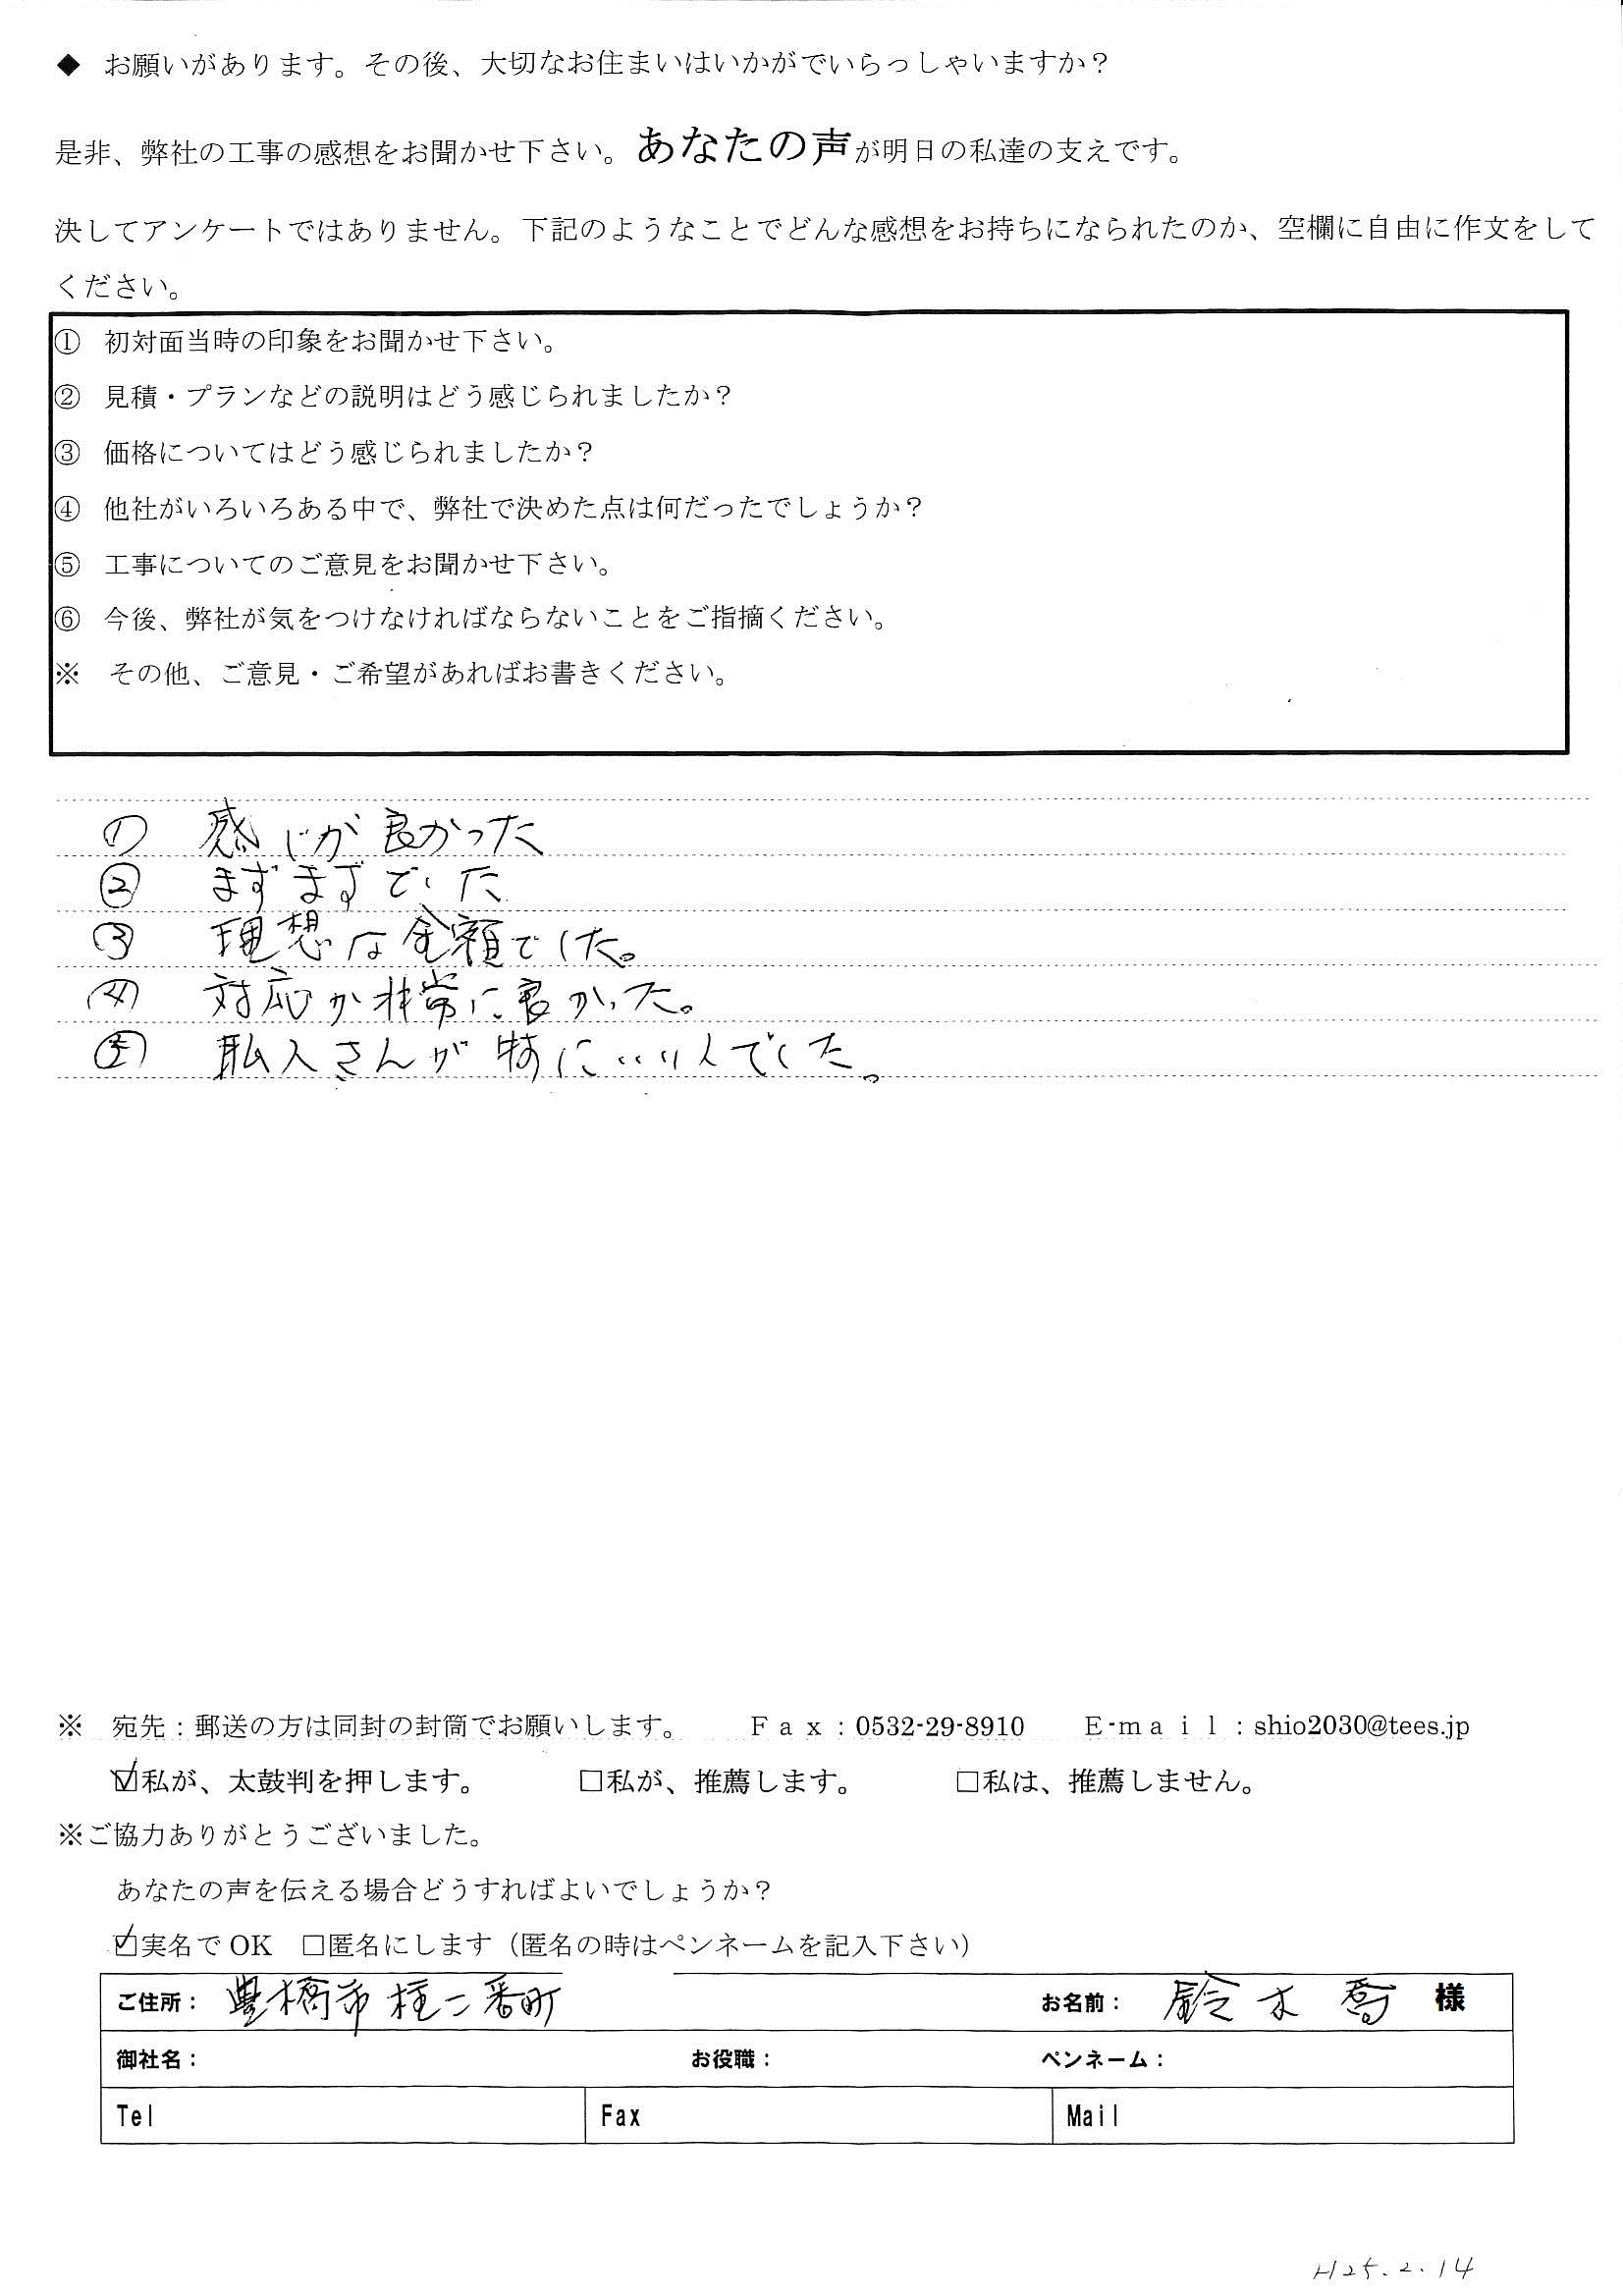 ◆ お願いがあります。その後、大切なお住まいはいかがでいらっしゃいますか？
是非、弊社の工事の感想をお聞かせ下さい。あなたの声が明日の私達の支えです。
決してアンケートではありません。下記のようなことでどんな感想をお持ちになられたのか、空欄に自由に作文をして
ください。
① 初対面当時の印象をお聞かせ下さい。
② 見積・プランなどの説明はどう感じられましたか？
③ 価格についてはどう感じられましたか？
④ 他社がいろいろある中で、弊社で決めた点は何だったでしょうか？
⑤ 工事についてのご意見をお聞かせ下さい。
⑥ 今後、弊社が気をつけなければならないことをご指摘ください。
※ その他、ご意見・ご希望があればお書きください。
① 感じが良かった
② まずまずでした
③ 理想な金額でした。
④ 対応が非常に良かった。
⑤ 職人さんが特にいい人でした。
※ 宛先：郵送の方は同封の封筒でお願いします。 Ｆａｘ：0532-29-8910 E-ｍａｉｌ：shio2030@tees.jp
☑私が、太鼓判を押します。 □私が、推薦します。 □私は、推薦しません。
※ご協力ありがとうございました。
あなたの声を伝える場合どうすればよいでしょうか？
☑実名でOK □匿名にします（匿名の時はペンネームを記入下さい）
ご住所： 豊橋市 二番町 お名前： 鈴木 喬 様
御社名： お役職： ペンネーム：
Tel Fax Mail
H25.2.14